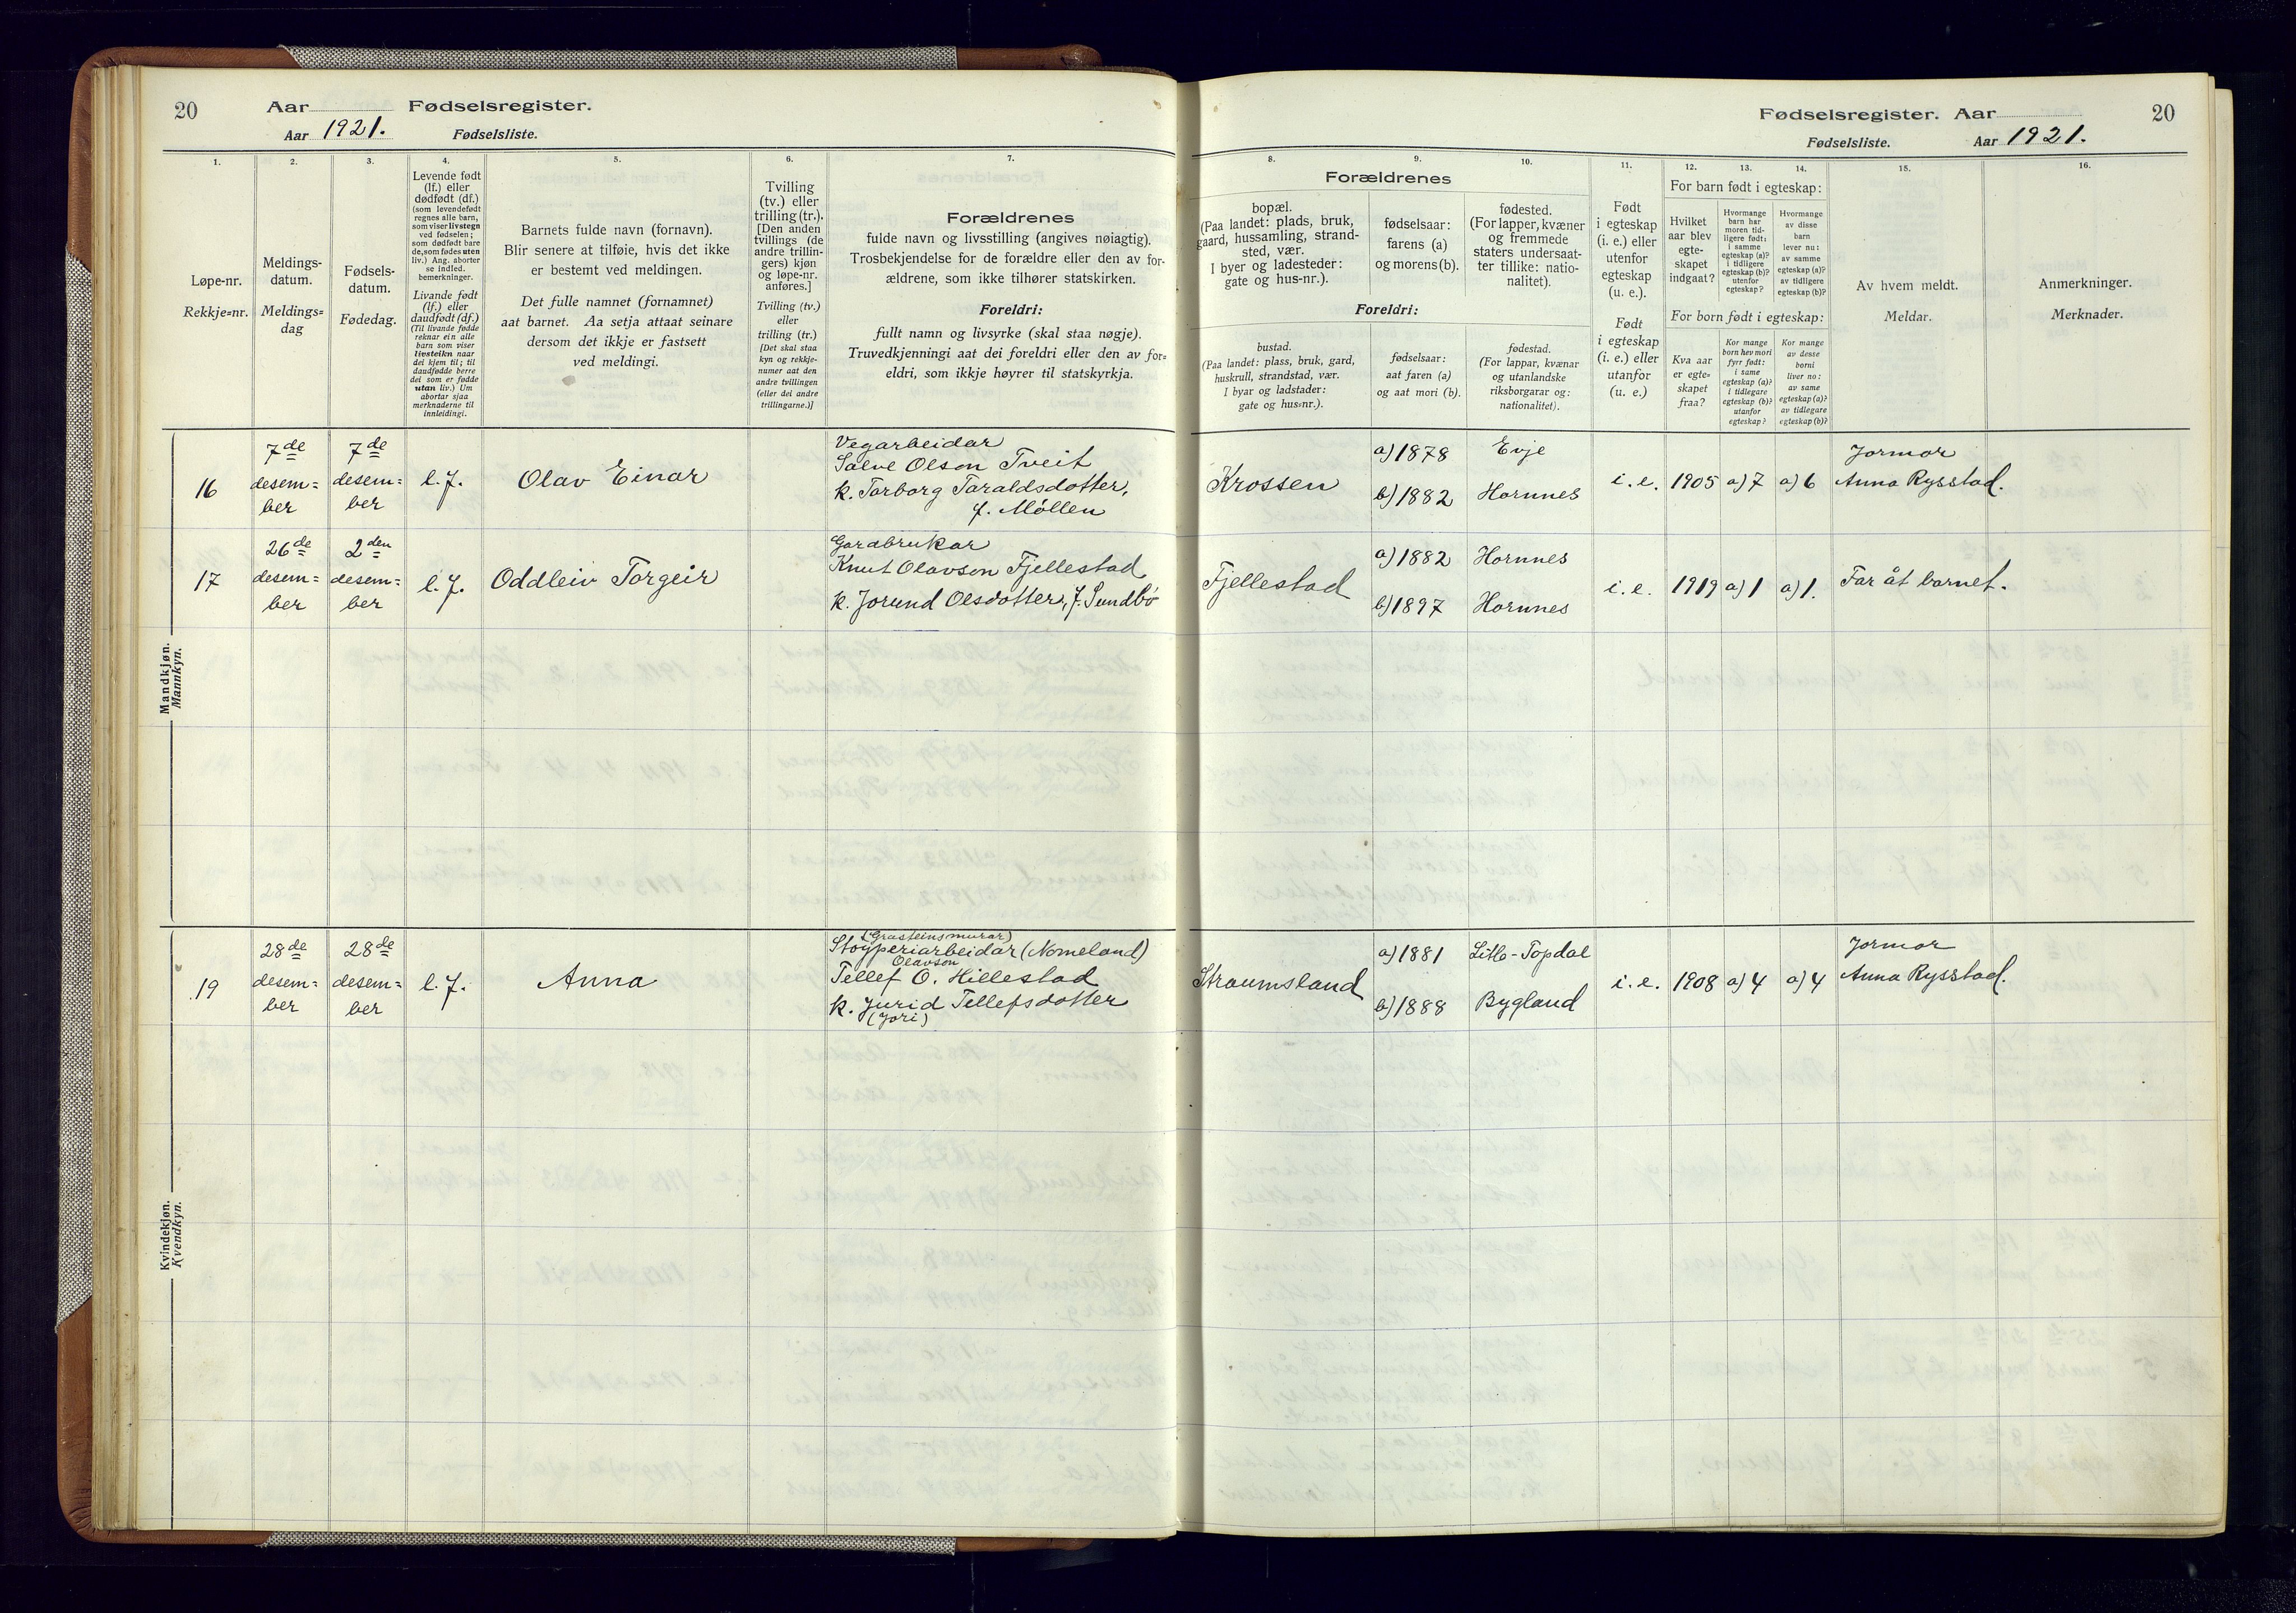 20
Aar
Fødselsregister.
Aar 1921.
Fødselsliste.
1.
2.
3.
4.
5.
6.
7.
Løpe-nr.
Rekkje=nr.
Meldings-
datum.
Meldings=
dag
Fødsels-
datum.
Fødedag.
Levende født
(lf.) eller
dødfødt (df.)
(som levendefødt
regnes alle barn,
som viser livstegn
ved fødselen;
som dødfødt bare
de, som fødes uten
liv.) Ang. aborter
se indled.
bemerkninger.
Livande født
(lf.) eller
daudfødt (df.)
(Til livande fødde
reknar ein alle
barn som viser
livsteikn naar
dei kjem til; til
daudfødde berre
dei som er fødde
utan liv.) Um
abortar sjaa
merknaderne til
innleidingi.
Barnets fulde navn (fornavn).
Blir senere at tilføie, hvis det ikke
er bestemt ved meldingen.
Det fulle namnet (fornamnet)
aat barnet. Aa setja attaat seinare
dersom det ikkje er fastsett
ved meldingi.
Tvilling
(tv.) eller
trilling (tr.).
[Den anden
tvillings (de
andre trillin-
gers) kjøn
og løpe-nr.
anføres.]
Tvilling (tv.)
eller
trilling (tr.)
[Det skal staa
kyn og rekkje-
numer aat den
andre tvillingen
(eller dei andre
trillingarne.)]
Forældrenes
fulde navn og livsstilling (angives nøiagtig).
Trosbekjendelse for de forældre eller den av for-
ældrene, som ikke tilhører statskirken.
Foreldri:
fullt namn og livsyrke (skal staa nøgje).
Truvedkjenningi aat dei foreldri eller den av for=
eldri, som ikkje høyrer til statskyrkja.
Mandkjøn.
Mannkyn.
16
7de
desem=
ber
7de
desem=
ber
l.f.
Olav Einar
Vegarbeidar
Salve Olson Tveit
k. Torborg Taraldsdotter,
f. Møllen
17
26de
desem=
ber
2den
desem=
ber
l.f.
Oddleiv Torgeir
Gardbrukar
Knut Olavson Fjellestad
k. Jorund Olsdotter, f. Sundbö
Kvindekjøn.
Kvendkyn.
19
28de
desem=
ber
28de
desem=
ber
l.f.
Anna
(Grasteinsmurar)
Stoyperiarbeidar (Nomeland)
Olavson
Tellef O. Hillestad
k. Jurid Tellefsdotter
(Jori)
Fødselsregister. Aar
20
Fødselsliste.
Aar 1921.
8.
9.
10.
11.
12.
13.
14.
15.
16.
Forældrenes
bopæl.
(Paa landet: plads, bruk,
gaard, hussamling, strand-
sted, vær.
I byer og ladesteder:
gate og hus-nr.).
fødselsaar:
farens (a)
og morens (b).
fødested.
(For lapper, kvæner
og fremmede
staters undersaat-
ter tillike: natio-
nalitet).
Foreldri:
bustad.
(Paa landet: plass, bruk, gard,
huskrull, strandstad, vær.
I byar og ladstader:
gate og hus=nr.).
fødselsaar:
aat faren (a)
og aat mori (b).
fødestad.
(For lappar, kvænar
og utanlandske
riksborgarar og:
nationalitet).
Født
i egteskap
(i. e.) eller
utenfor
egteskap
(u. e.).
Født
i egteskap
(i. e.) eller
utanfor
(u. e.)
For barn født i egteskap:
Hvilket
aar blev
egte-
skapet
indgaat?
Hvormange
barn har
moren tid-
ligere født:
i samme
egteskap (a)?
i tidligere
egteskap (b)?
utenfor
egteskap?
Hvormange
av disse
barn
lever nu:
av samme
egteskap (a)?
av tidligere
egteskap (b)?
For born født i egteskap:
Kva aar
er egte=
skapet
fraa?
Kor mange
born hev mori
fyrr født:
i same
egteskap (a)?
i tidlegare
egteskap (b)?
utanfor
egteskap?
Kor mange
av desse
borni
liver no:
av same
egteskap (a)?
av tidlegare
egteskap (b)?
Av hvem meldt.
Meldar.
Anmerkninger.
Merknader.
Krossen
a) 1878
b) 1882
Evje
Hornnes
i. e.
1905
a) 7
a) 6
Jormor
Anna Rysstad.
Fjellestad
a) 1882
b) 1897
Hornnes
Hornnes
i. e.
1919
a) 1
a) 1.
Far åt barnet.
Straumsland
a) 1881
b) 1888
Litle-Topdal
Bygland
i. e.
1908
a) 4
a) 4
Jormor
Anna Rysstad.